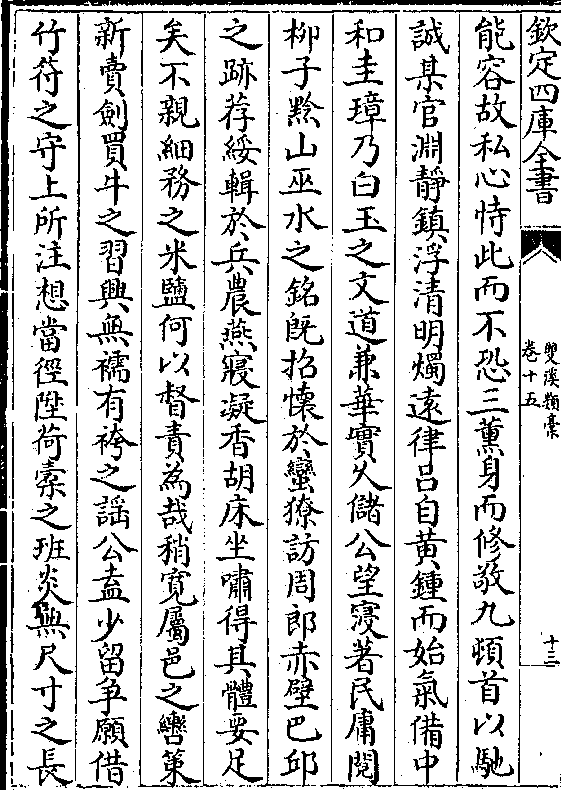 欽定四庫全書
雙溪類稾
卷十五
十三
能容故私心恃此而不恐三薰身而修敬九頓首以馳
誠某官淵靜鎮浮清明燭遠律呂自黃鍾而始氣備中
和圭璋乃白玉之文道兼華實久儲公望寖著民庸閱
柳子黔山巫水之銘既招懷於蠻獠訪周郎赤壁巴邱
之跡荐綏輯於兵農燕寢凝香胡床坐嘯得其體要足
矣不親細務之米鹽何以督責為哉稍寛屬邑之轡策
新賣劍買牛之習興無襦有袴之謡公盍少留爭願借
竹符之守上所注想當徑陞荷橐之班炎無尺寸之長